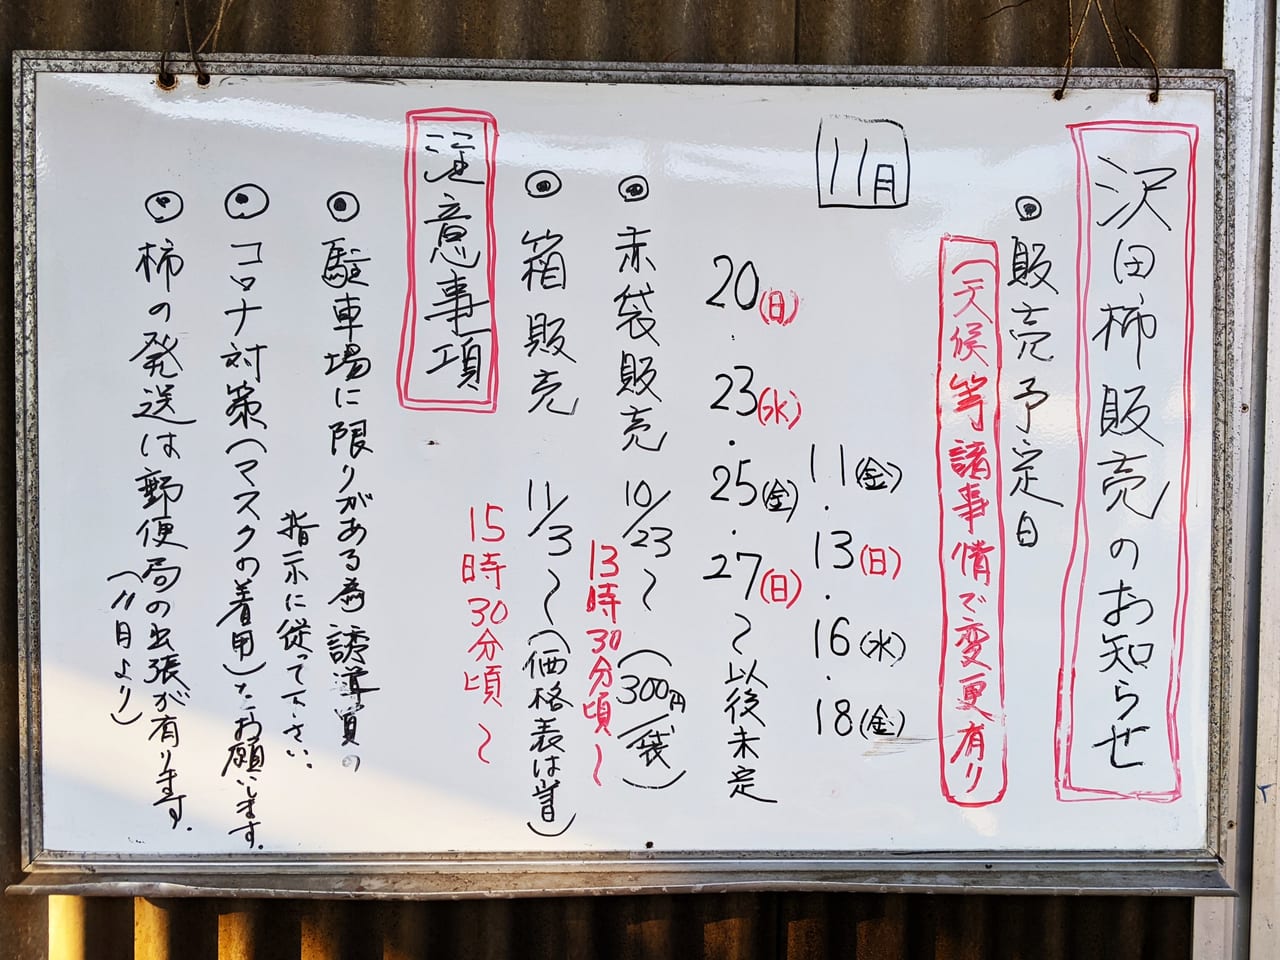 沢田柿販売のお知らせ
◉販売予定日
(天候等諸事情で変更有り
11月
11(金)・13(日)・16(水)・18(金)
20(日)・23(水)・25(金)・27(日)〜以後未定
◉赤袋販売 10/23〜(300円/袋)
13時30分頃〜
◉箱販売 11/3〜(価格表は
15時30分頃〜
注意事項
◉駐車場に限りがある為誘導員の
指示に従って下さい.
◉コロナ対策(マスクの着用)をお願いします.
◉柿の発送は郵便局の出張が有ります.
(11月より)